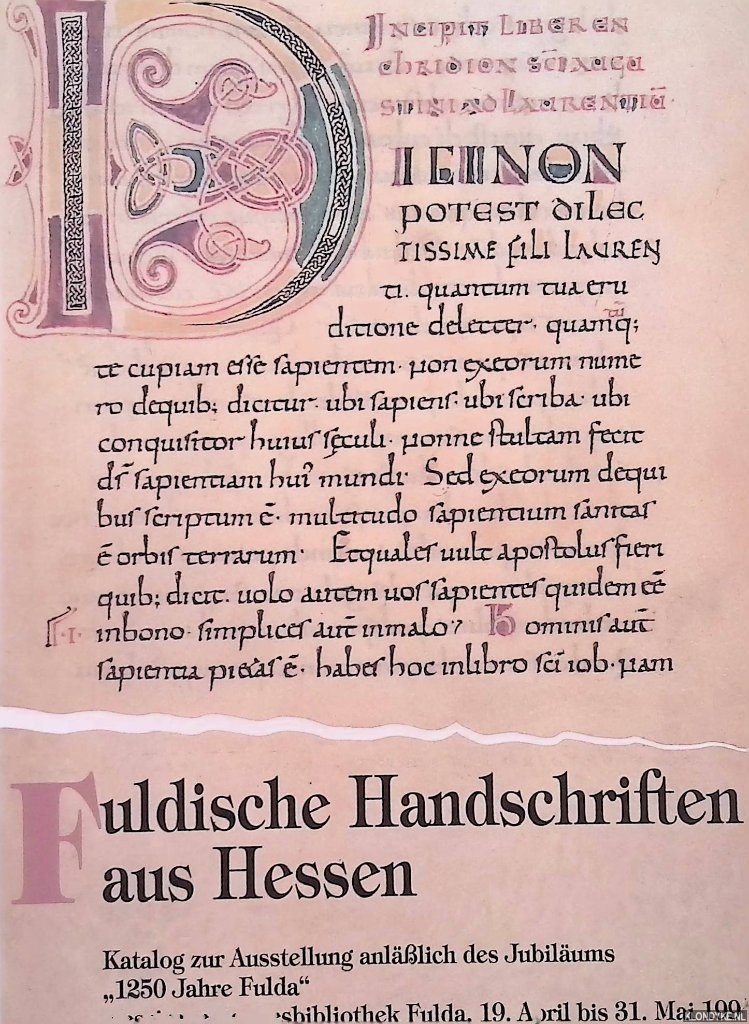 INCIPIT LIBER EN
CHRIDION SCI AUGU
STINI AD LAURENTIŪ
DICI NON
POTEST DILEC
TISSIME FILI LAUREN
ti. quantum tua eru
ditione delecter. quamq;
tū
te cupiam esse sapientem. non exeorum nume
ro dequib; dicitur. ubi sapiens. ubi scriba. ubi
conquisitor huius sęculi. nonne stultam fecit
ds̄ sapientiam hui' mundi. Sed exeorum dequi
bus scriptum ē. multitudo sapientium sanitas
ē orbis terrarum. Etquales uult apostolus fieri
quib; dicit. uolo autem uos sapientes quidem eē
inbono. simplices aut̄ inmalo; Hominis aut̄
.I.
sapientia pietas ē. habes hoc inlibro sc̄i iob. nam
Fuldische Handschriften
aus Hessen
Katalog zur Ausstellung anläßlich des Jubiläums
„1250 Jahre Fulda“
sbibliothek Fulda, 19. April bis 31. Mai 199
KLONDYKE.NL